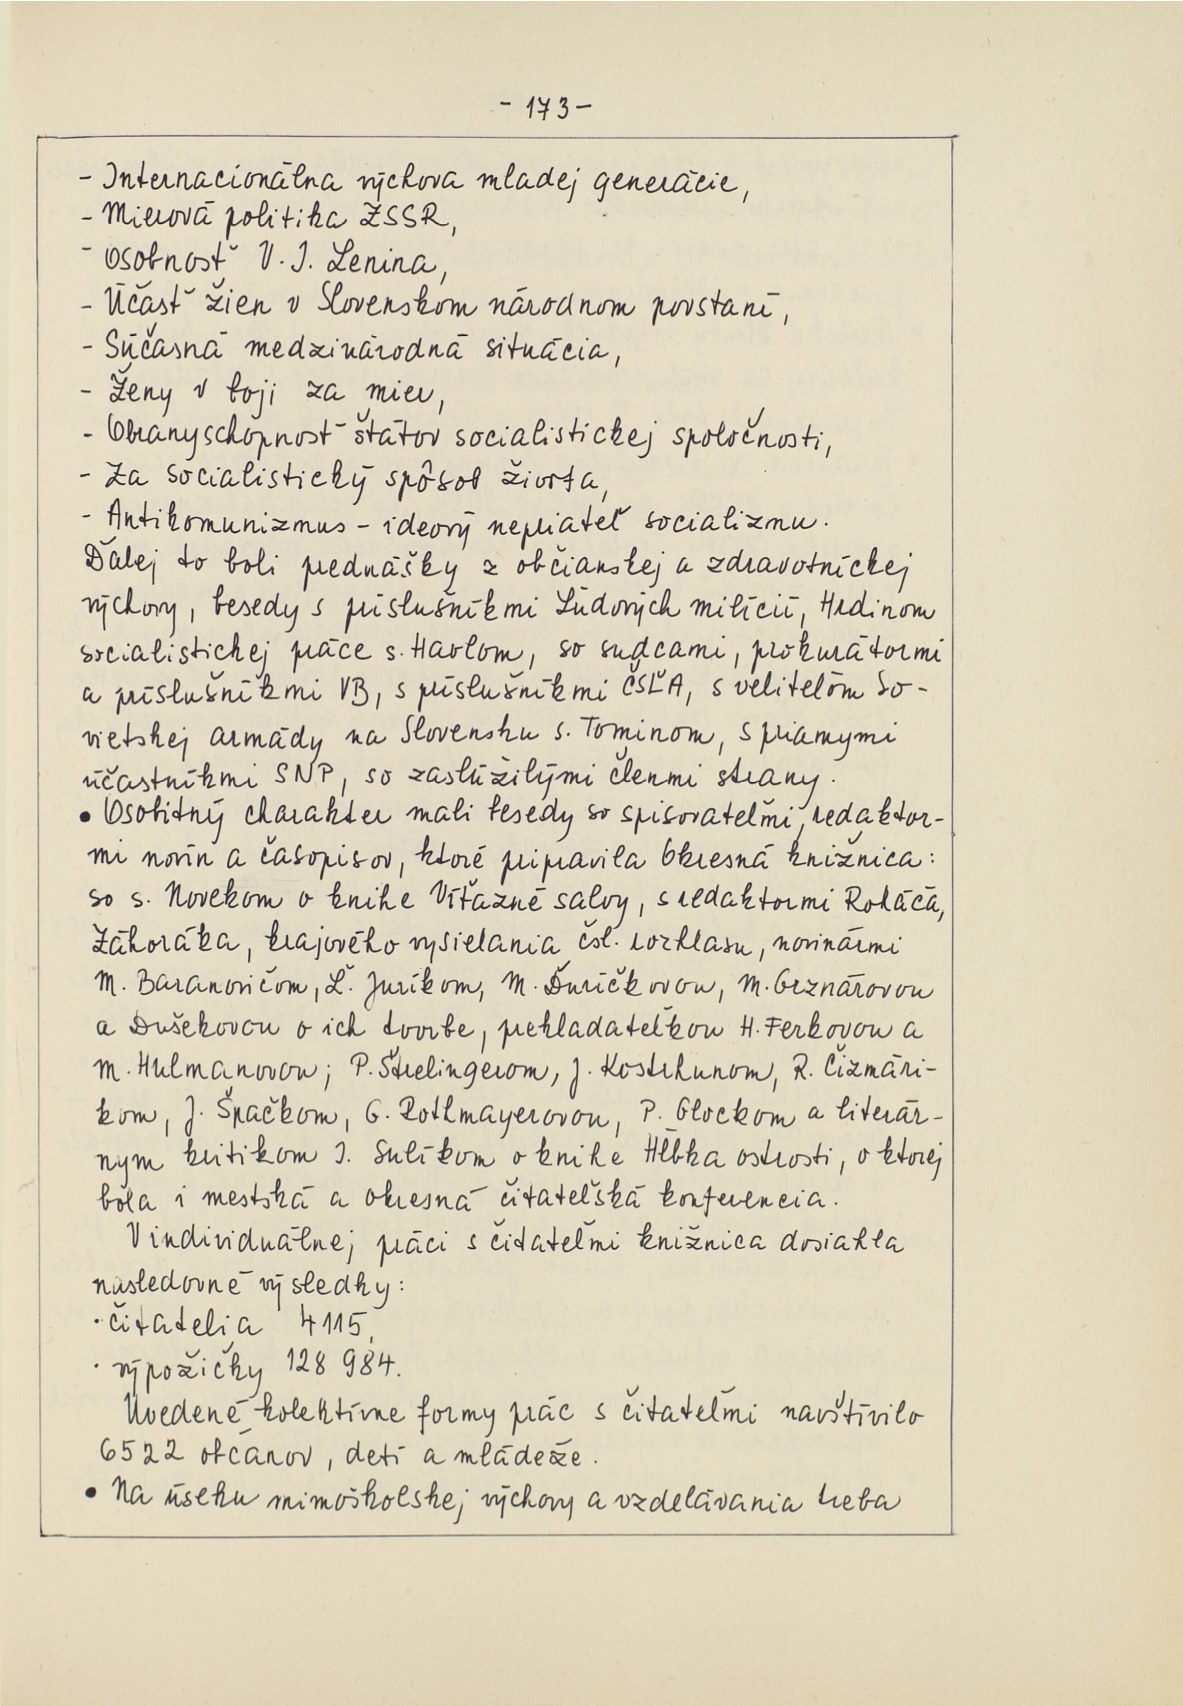 - 173 -
- Internacionálna výchova mladej generácie,
- Mierová politika ZSSR,
- Osobnosť V. I. Lenina,
- Účasť žien v Slovenskom národnom povstaní,
- Súčasná medzinárodná situácia,
- Ženy v boji za mier,
- Obranyschopnosť štátov socialistickej spoločnosti,
- Za socialistický spôsob života,
- Antikomunizmus - ideový nepriateľ socializmu.
Ďalej to boli prednášky z občianskej a zdravotníckej
výchovy, besedy s príslušníkmi Ľudových milícií, Hrdinom
socialistickej práce s. Havlom, so sudcami, prokurátormi
a príslušníkmi VB, s príslušníkmi ČSĽA, s veliteľom So-
vietskej armády na Slovensku s. Tominom, s priamymi
účastníkmi SNP, so zaslúžilými členmi strany.
• Osobitný charakter mali besedy so spisovateľmi, redaktor-
mi novín a časopisov, ktoré pripravila Okresná knižnica:
so s. Novekom o knihe Víťazné salvy, s redaktormi Roháča,
Záhoráka, krajového vysielania čsl. rozhlasu, novinármi
M. Baranovičom, Ľ. Juríkom, M. Ďuríčkovou, M. Grznárovou
a Dušekovou o ich tvorbe, prekladateľkou H. Ferkovou a
M. Hulmanovou; P. Štrelingerom, J. Kostrhunom, R. Čižmári-
kom, J. Špačkom, G. Rothmayerovou, P. Glockom a literár-
nym kritikom I. Sulíkom o knihe Hĺbka ostrosti, o ktorej
bola i mestská a okresná čitateľská konferencia.
V individuálnej práci s čitateľmi knižnica dosiahla
nasledovné výsledky:
· čitatelia 4115,
· výpožičky 128 984.
Uvedené kolektívne formy prác s čitateľmi navštívilo
6522 občanov, detí a mládeže.
• Na úseku mimoškolskej výchovy a vzdelávania treba